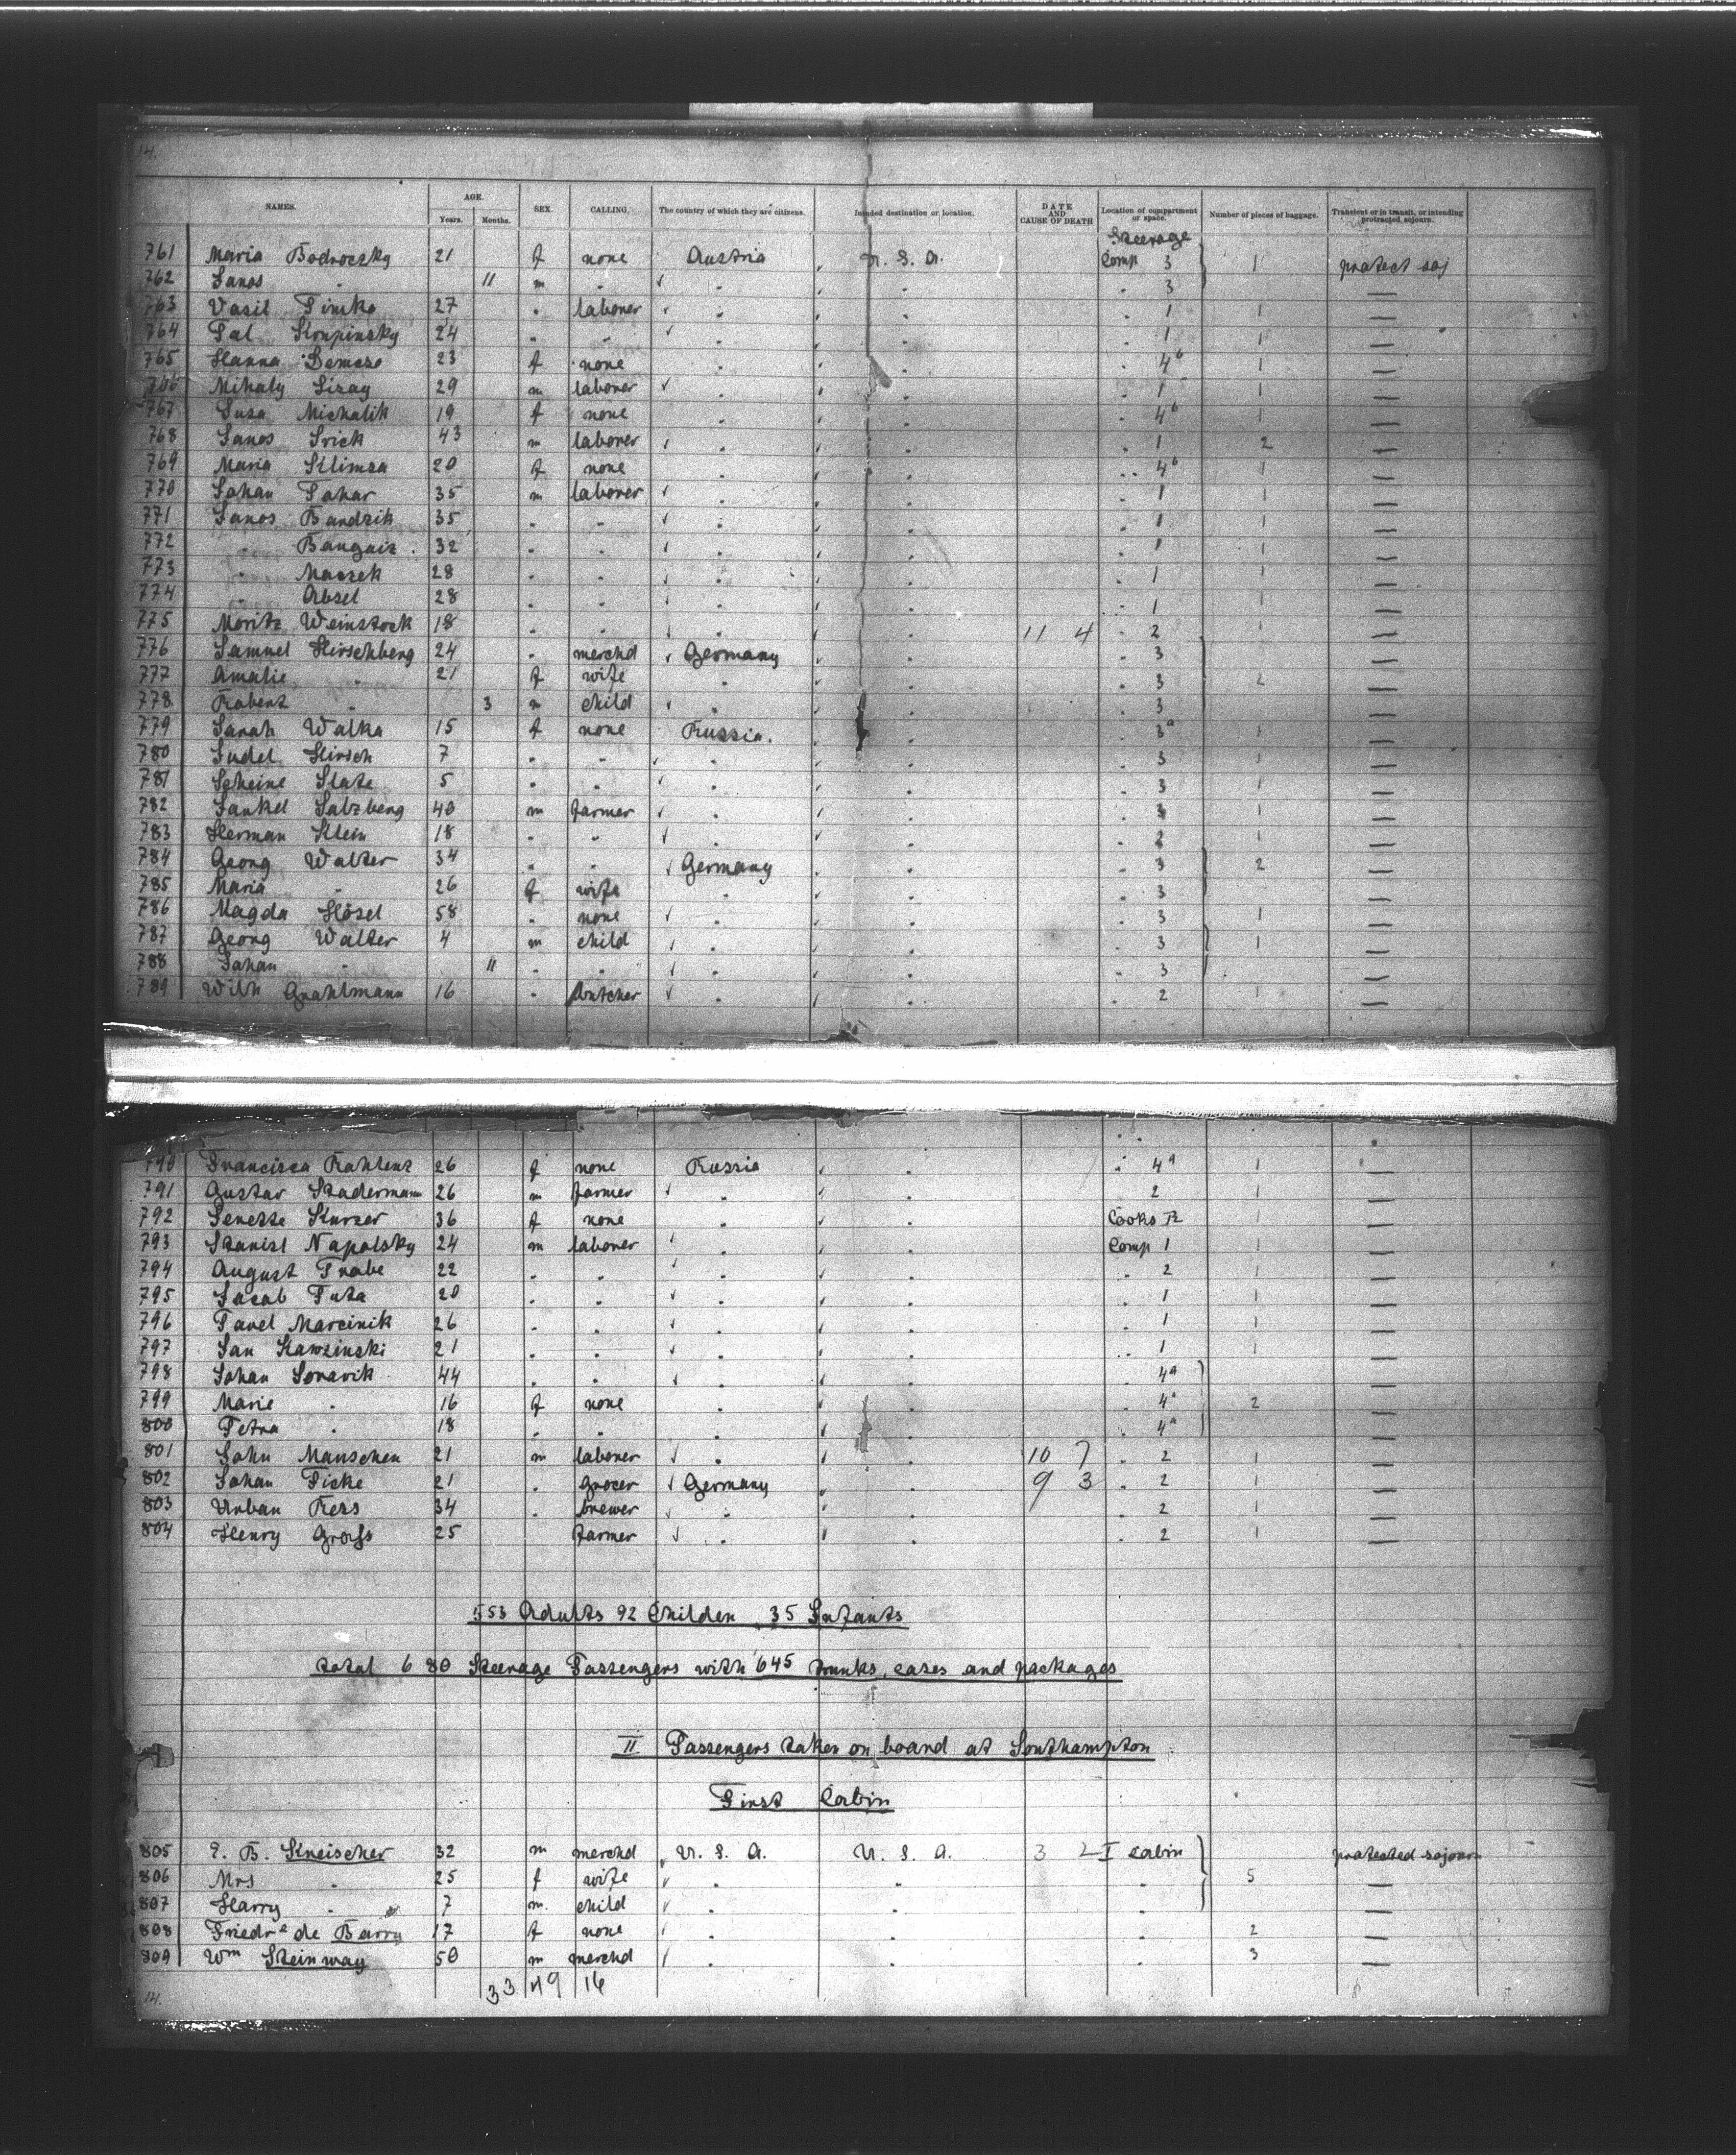 14.
NAMES. AGE. Years. Months. SEX. CALLING. The country of which they are citizens. Intended destination or location. DATE AND CAUSE OF DEATH Location of compartment or space. Number of pieces of baggage. Transient or in transit, or intending protracted sojourn.
Steerage
761 Maria Bodroczky 21 f none Austria U. S. A. Comp 3 1 protect soj
762 Janos " 11 m " " 3 —
763 Vasil Timko 27 " laborer " " 1 1 —
764 Pal Krupinsky 24 " " " " 1 1 —
765 Hanna Demcso 23 f none " " 4b 1 —
766 Mihaly Lizay 29 m laborer " " 1 1 —
767 Susa Michalik 19 f none " " 4b 1 —
768 Janos Srick 43 m laborer " " 1 2 —
769 Maria Klimsa 20 f none " " 4b 1 —
770 Johan Pohar 35 m laborer " " 1 1 —
771 Janos Bandzik 35 " " " " 1 1 —
772 " 32 " " " " 1 1 —
773 " Maczek 28 " " " " 1 1 —
774 " Absel 28 " " " " 1 1 —
775 Moritz Weinstock 18 " " " " 11 4 " 2 1 —
776 Samuel Hirschberg 24 " merchd Germany " 3 —
777 Amalie " 21 f wife " " 3 2 —
778 Robert " 3 m child " " 3 —
779 Sarah Walka 15 f none Russia. " 3a 1 —
780 Judel Hirsch 7 " " " " 3 1 —
781 Scheine Slate 5 " " " " 3 1 —
782 Jankel Salzberg 40 m farmer " " 3 1 —
783 Herman Klein 18 " " " " 2 1 —
784 Georg Walter 34 " " Germany " 3 2 —
785 Maria " 26 f wife " " 3 —
786 Magda Hösel 58 " none " " 3 1 —
787 Georg Walter 4 m child " " 3 1 —
788 Johan " 11 " " " " 3 —
789 Wilh Grahlmann 16 " butcher " " 2 1 —
790 Francisca Rahlenz 26 f none Russia " 4a 1 —
791 Gustav Stadermann 26 m farmer " " 2 1 —
792 Jenette Kurzer 36 f none " " Cooks R 1 —
793 Stanisl Napolsky 24 m laborer " " Comp 1 1 —
794 August Prabe 22 " " " " 2 1 —
795 Jacob Puta 20 " " " " 1 1 —
796 Pavel Marcinik 26 " " " " 1 1 —
797 Jan Kawzinski 21 " " " " 1 1 —
798 Johan Soravik 44 " " " " 4a —
799 Marie " 16 f none " " 4a 2 —
800 Petra " 18 " " " " 4a —
801 John Manschen 21 m laborer " " 10 7 " 2 1 —
802 Johan Ficke 21 " grocer Germany " 9 3 " 2 1 —
803 Urban Ress 34 " brewer " " 2 1 —
804 Henry Groß 25 farmer " " 2 1 —
553 Adults 92 Childen 35 Infants
total 680 Steerage Passengers with 645 trunks, cases and packages
II Passengers taken on board at Southampton
First Cabin
805 E. B. Kreischer 32 m merchd U. S. A. U. S. A. 3 2 I cabin protected sojourn
806 Mrs " 25 f wife " " " 5 —
807 Harry " 7 m. child " " " —
808 Friedre de Barry 17 f none " " " 2 —
809 Wm Steinway 50 m merchd " " " 3 —
33 49 16
14.